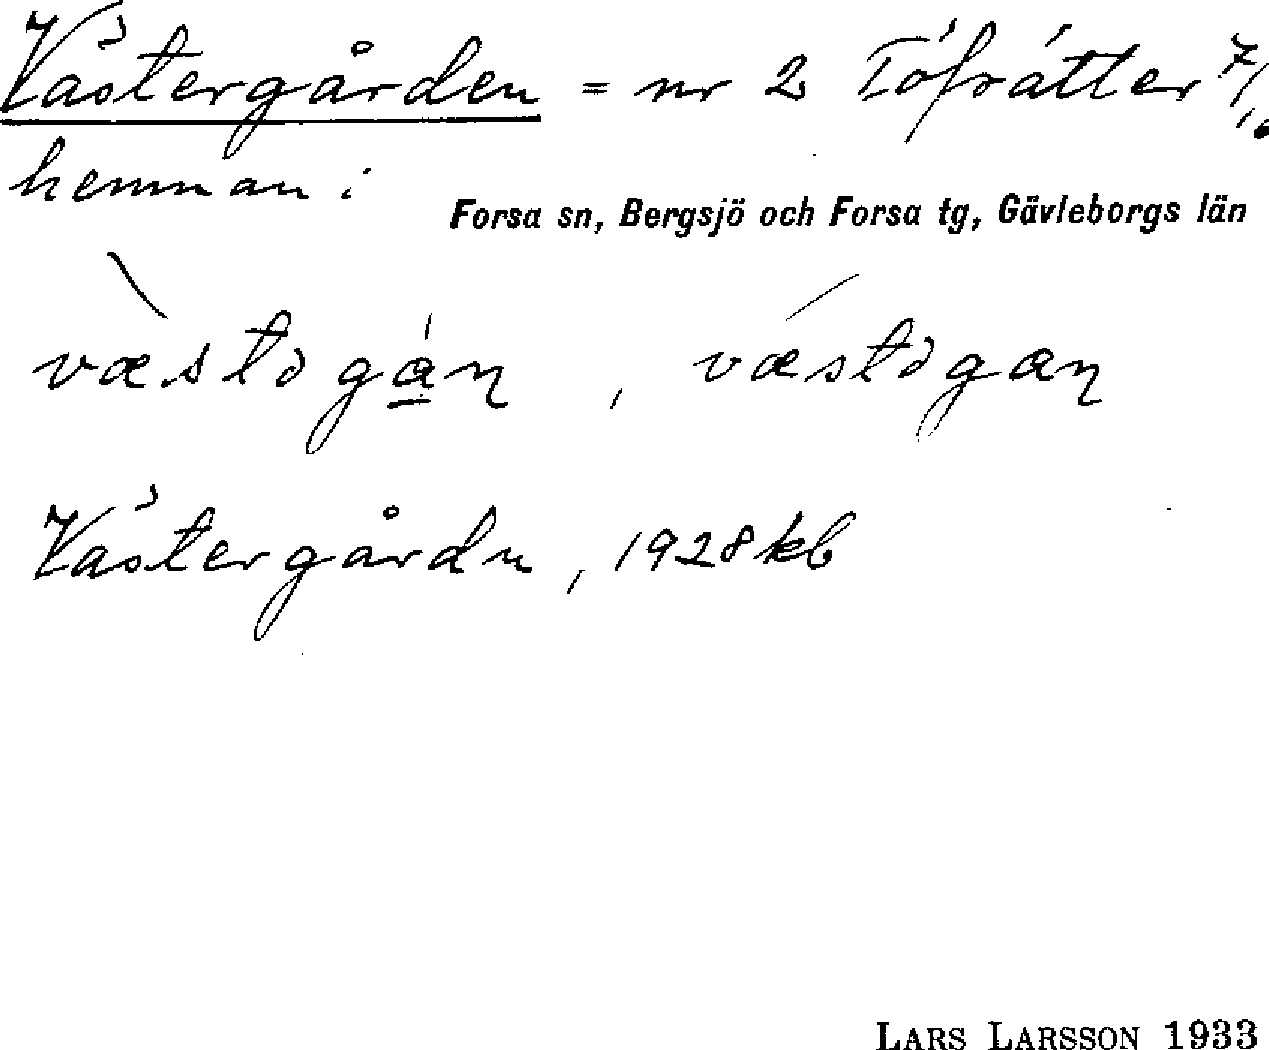 Västergården = nr 2 Töfsätter 7/16
hemman i
Forsa sn, Bergsjö och Forsa tg, Gävleborgs län
væstəgan, væstəgaɳ
Västergårdn, 1928 kb
LARS LARSSON 1933